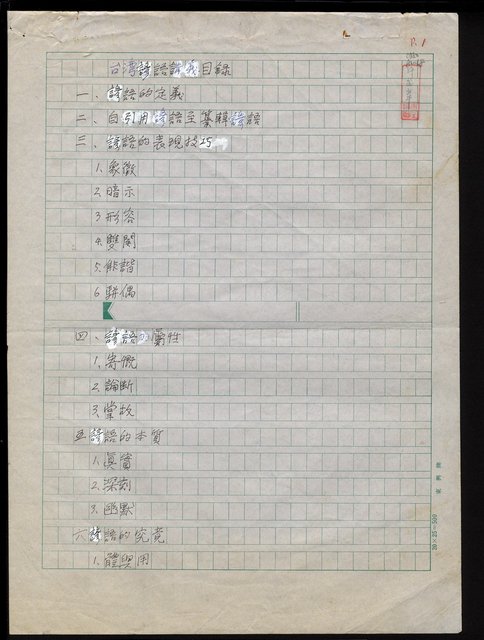 P.1
台湾諺語講義目錄
一、諺語的定義
二、自引用諺語至纂輯諺語
三、諺語的表現技巧
1.象徵
2.暗示
3.形容
4.雙関
5.俳諧
6.駢偶
四、諺語的彙性
1.寄慨
2.論断
3.掌故
五諺語的本質
1.真實
2.深刻
3.幽默
六諺語的究竟
1.體與用